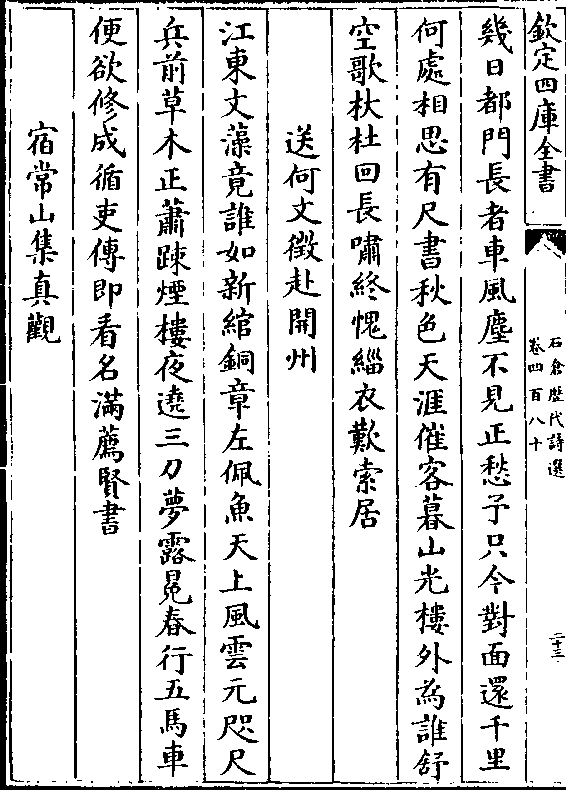 欽定四庫全書
石倉歴代詩選
卷四百八十
二十三
幾日都門長者車風塵不見正愁予只今對面還千里
何處相思有尺書秋色天涯催客暮山光樓外為誰舒
空歌杕杜回長嘯終愧緇衣歎索居
送何文徴赴開州
江東文藻竟誰如新綰銅章左佩魚天上風雲元咫尺
兵前草木正蕭踈煙樓夜遶三刀夢露冕春行五馬車
便欲修成循吏傳即看名滿薦賢書
宿常山集真觀